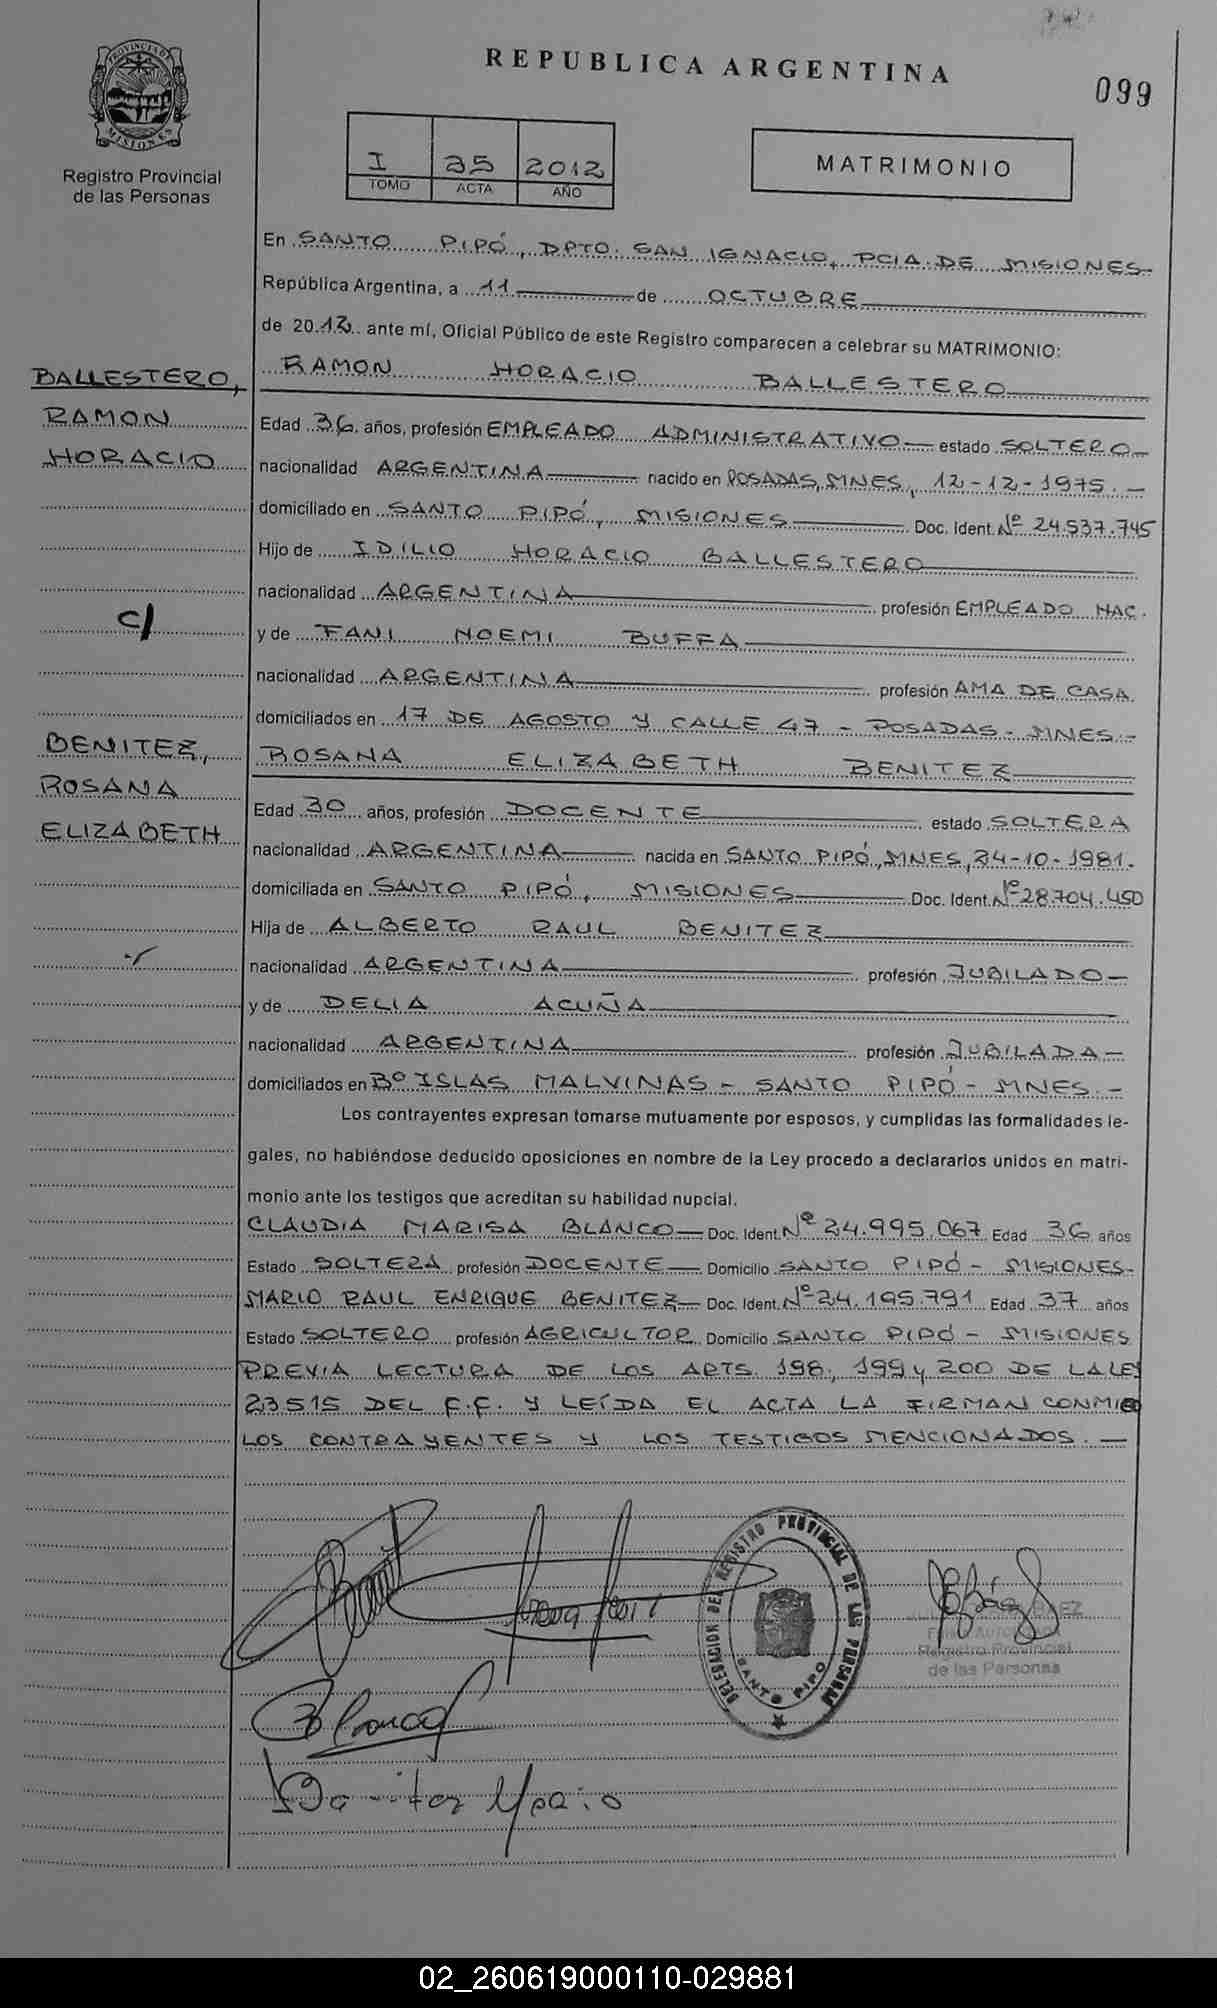 REPUBLICA ARGENTINA
099
PROVINCIA DE MISIONES
Registro Provincial
de las Personas
I 35 2012
TOMO ACTA AÑO
MATRIMONIO
En SANTO PIPÓ, DPTO. SAN IGNACIO, PCIA. DE MISIONES.-
República Argentina, a 11 de OCTUBRE
de 2012 ante mí, Oficial Público de este Registro comparecen a celebrar su MATRIMONIO:
BALLESTERO,
RAMON
HORACIO
c/
BENITEZ,
ROSANA
ELIZABETH
RAMON HORACIO BALLESTERO
Edad 36 años, profesión EMPLEADO ADMINISTRATIVO estado SOLTERO
nacionalidad ARGENTINA nacido en POSADAS, MNES, 12-12-1975.-
domiciliado en SANTO PIPÓ, MISIONES Doc. Ident. Nº 24.537.745
Hijo de IDILIO HORACIO BALLESTERO
nacionalidad ARGENTINA profesión EMPLEADO NAC.
y de FANI NOEMI BUFFA
nacionalidad ARGENTINA profesión AMA DE CASA
domiciliados en 17 DE AGOSTO Y CALLE 47 - POSADAS - MNES.-
ROSANA ELIZABETH BENITEZ
Edad 30 años, profesión DOCENTE estado SOLTERA
nacionalidad ARGENTINA nacida en SANTO PIPÓ, MNES, 24-10-1981.
domiciliada en SANTO PIPÓ, MISIONES Doc. Ident. Nº 28.704.450
Hija de ALBERTO RAUL BENITEZ
nacionalidad ARGENTINA profesión JUBILADO
y de DELIA ACUÑA
nacionalidad ARGENTINA profesión JUBILADA
domiciliados en Bº ISLAS MALVINAS - SANTO PIPÓ - MNES.-
Los contrayentes expresan tomarse mutuamente por esposos, y cumplidas las formalidades le-
gales, no habiéndose deducido oposiciones en nombre de la Ley procedo a declararlos unidos en matri-
monio ante los testigos que acreditan su habilidad nupcial.
CLAUDIA MARISA BLANCO Doc. Ident. Nº 24.995.067 Edad 36 años
Estado SOLTERA profesión DOCENTE Domicilio SANTO PIPÓ - MISIONES-
MARIO RAUL ENRIQUE BENITEZ Doc. Ident. Nº 24.195.791 Edad 37 años
Estado SOLTERO profesión AGRICULTOR Domicilio SANTO PIPÓ - MISIONES
PREVIA LECTURA DE LOS ARTS. 198, 199 y 200 DE LA LEY
23515 DEL C.C. Y LEÍDA EL ACTA LA FIRMAN CONMIGO
LOS CONTRAYENTES Y LOS TESTIGOS MENCIONADOS.-
DELEGACION DEL REGISTRO PROVINCIAL DE LAS PERSONAS
SANTO PIPO
Registro Provincial
de las Personas
Blanco
Benitez Mario
02_260619000110-029881